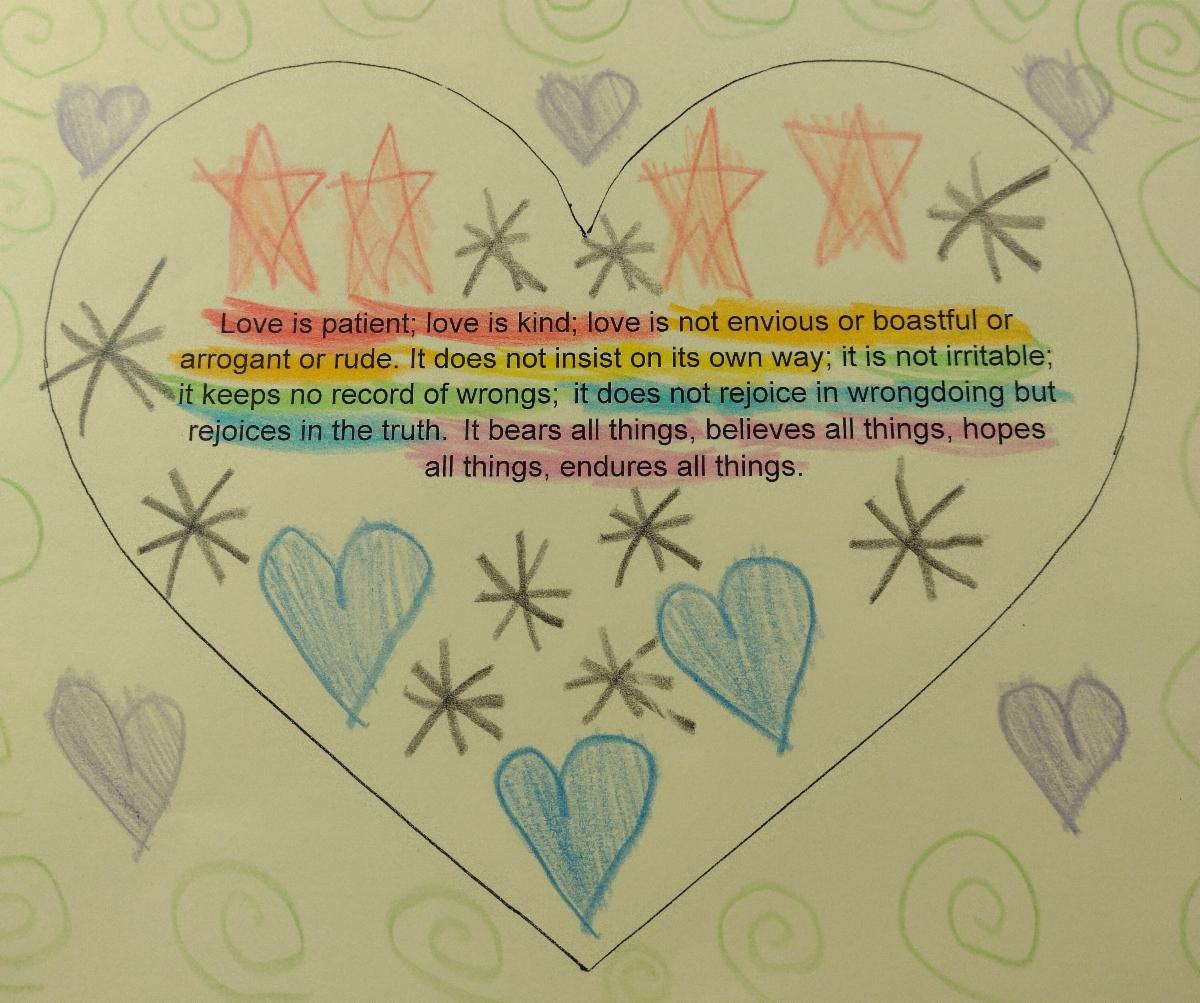 Love is patient; love is kind; love is not envious or boastful or
arrogant or rude. It does not insist on its own way; it is not irritable;
it keeps no record of wrongs; it does not rejoice in wrongdoing but
rejoices in the truth. It bears all things, believes all things, hopes
all things, endures all things.